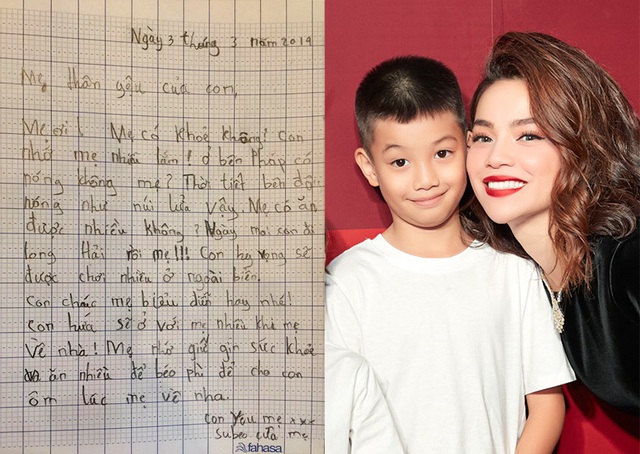 Ngày 3 tháng 3 năm 2019
Mẹ thân yêu của con,
Mẹ ơi! Mẹ có khoẻ không! Con
nhớ mẹ nhiều lắm! ở bên Pháp có
nóng không mẹ? Thời tiết bên đây
nóng như núi lửa vậy. Mẹ có ăn
được nhiều không? Ngày mai con đi
long Hải rồi mẹ!!! Con hy vọng sẽ
được chơi nhiều ở ngoài biển.
Con chúc mẹ biểu diễn hay nhé!
con hứa sẽ ở với mẹ nhiều khi mẹ
về nhà! Mẹ nhớ giữ gìn sức khoẻ
và ăn nhiều để béo phì để cho con
ôm lúc mẹ về nha.
con yêu mẹ xxx
subeo của mẹ
fahasa